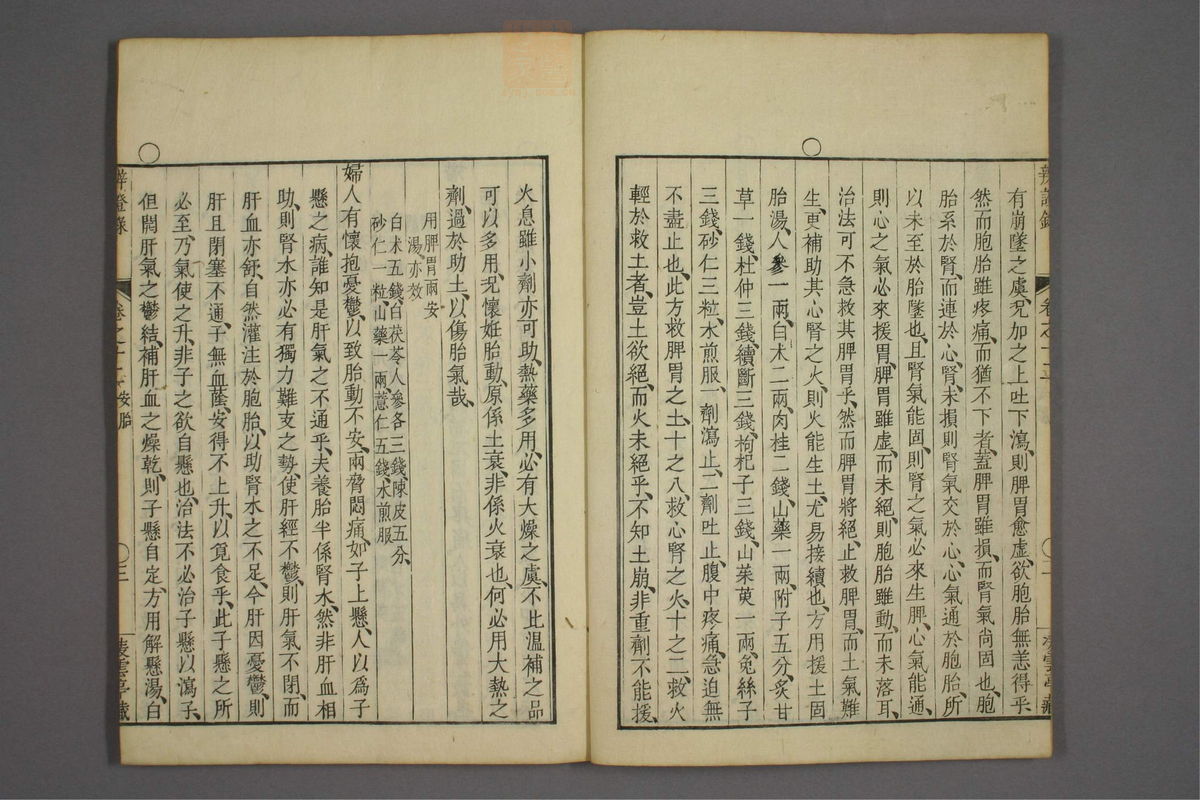 有崩墜之虞、況加之上吐下瀉、則脾胃愈虛、欲胞胎無恙得乎
然而胞胎雖疼痛、而猶不下者、蓋脾胃雖損、而腎氣尚固也、胞
胎系於腎、而連於心、腎未損則腎氣交於心、心氣通於胞胎、所
以未至於胎墜也、且腎氣能固、則腎之氣必來生脾、心氣能通、
則心之氣必來援胃、脾胃雖虛、而未絕、則胞胎雖動、而未落耳、
治法可不急救其脾胃乎、然而脾胃將絕、止救脾胃、而土氣難
生、更補助其心腎之火、則火能生土、尤易接續也、方用援土固
胎湯、人參一兩、白朮二兩、肉桂二錢、山藥一兩、附子五分、炙甘
草一錢、杜仲三錢、續斷三錢、枸杞子三錢、山茱萸一兩、兔絲子
三錢、砂仁三粒、水煎服、一劑瀉止、二劑吐止、腹中疼痛、急迫無
不盡止也、此方救脾胃之土、十之八、救心腎之火、十之二、救火
輕於救土者、豈土欲絕、而火未絕乎、不知土崩、非重劑不能援、
火息雖小劑亦可助、熱藥多用、必有大燥之虞、不比溫補之品
可以多用、況懷妊胎動、原係土衰、非係火衰也、何必用大熱之
劑、過於助土、以傷胎氣哉、
用脾胃兩安
湯、亦效
白朮五錢、白茯苓人參各三錢、陳皮五分、
砂仁一粒、山藥一兩、薏仁五錢、水煎服
婦人有懷抱憂鬱、以致胎動不安、兩脅悶痛、如子上懸、人以爲子
懸之病、誰知是肝氣之不通乎、夫養胎半係腎水、然非肝血相
助、則腎水亦必有獨力難支之勢、使肝經不鬱、則肝氣不閉、而
肝血亦舒、自然灌注於胞胎、以助腎水之不足、今肝因憂鬱、則
肝且閉塞不通、子無血蔭、安得不上升、以覓食乎、此子懸之所
必至、乃氣使之升、非子之欲自懸也、治法不必治子懸以瀉子、
但開肝氣之鬱結、補肝血之燥乾、則子懸自定、方用解懸湯、白
辨證錄
卷之十二 安胎
三